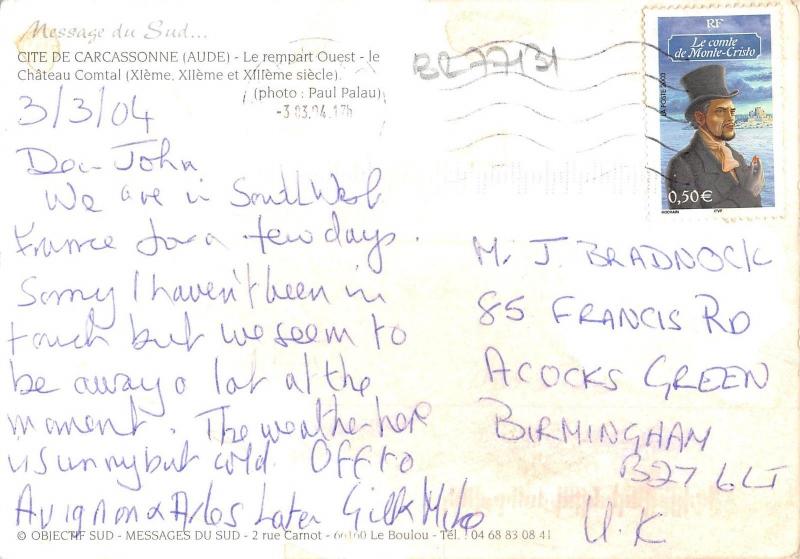 Message du Sud...
CITE DE CARCASSONNE (AUDE) - Le rempart Ouest - le
Château Comtal (XIème, XIIème et XIIIème siècle).
(photo : Paul Palau)
-3.03.04.17h
BR77131
RF
Le comte
de Monte-Cristo
LA POSTE 2003
0,50€
ROCHAIN ITVF
3/3/04
Dear John
We are in South West
France for a few days.
Sorry I haven't been in
touch but we seem to
be away a lot at the
moment. The weather here
is sunny but cold. Off to
Avignon & Arles Later Gill & Mike
M. J. BRADNOCK
85 FRANCIS RD
ACOCKS GREEN
BIRMINGHAM
B27 6LT
U.K
© OBJECTIF SUD - MESSAGES DU SUD - 2 rue Carnot - 66160 Le Boulou - Tél. : 04 68 83 08 41